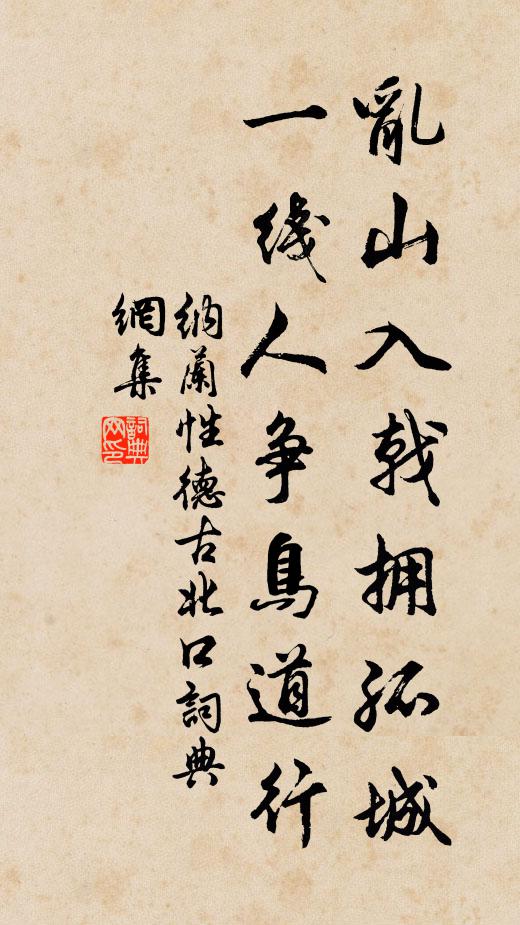 亂山入戟拥孤城
一线人争鳥道行
纳蘭性德古北口詞典
網集
詞典
网印